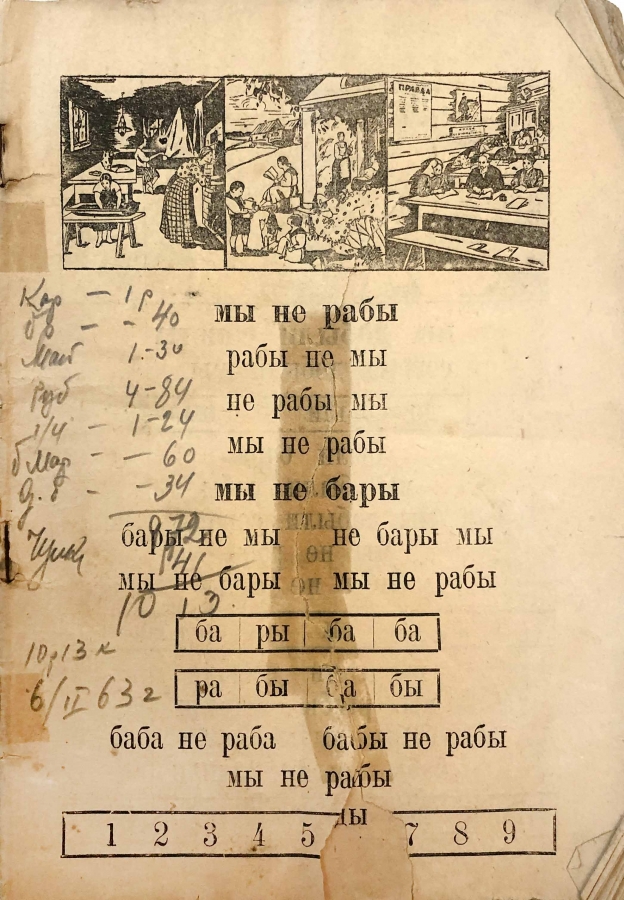 ПРАВДА
мы не рабы
рабы не мы
не рабы мы
мы не рабы
мы не бары
бары не мы не бары мы
мы не бары мы не рабы
ба ры ба ба
ра бы ба бы
баба не раба бабы не рабы
мы не рабы
ды
1 2 3 4 5 7 8 9
Кар - 1р
- 40
1.-30
4-84
1-24
б Мар - - 60
- 34
972
10 13
10р13к
6/II 63г